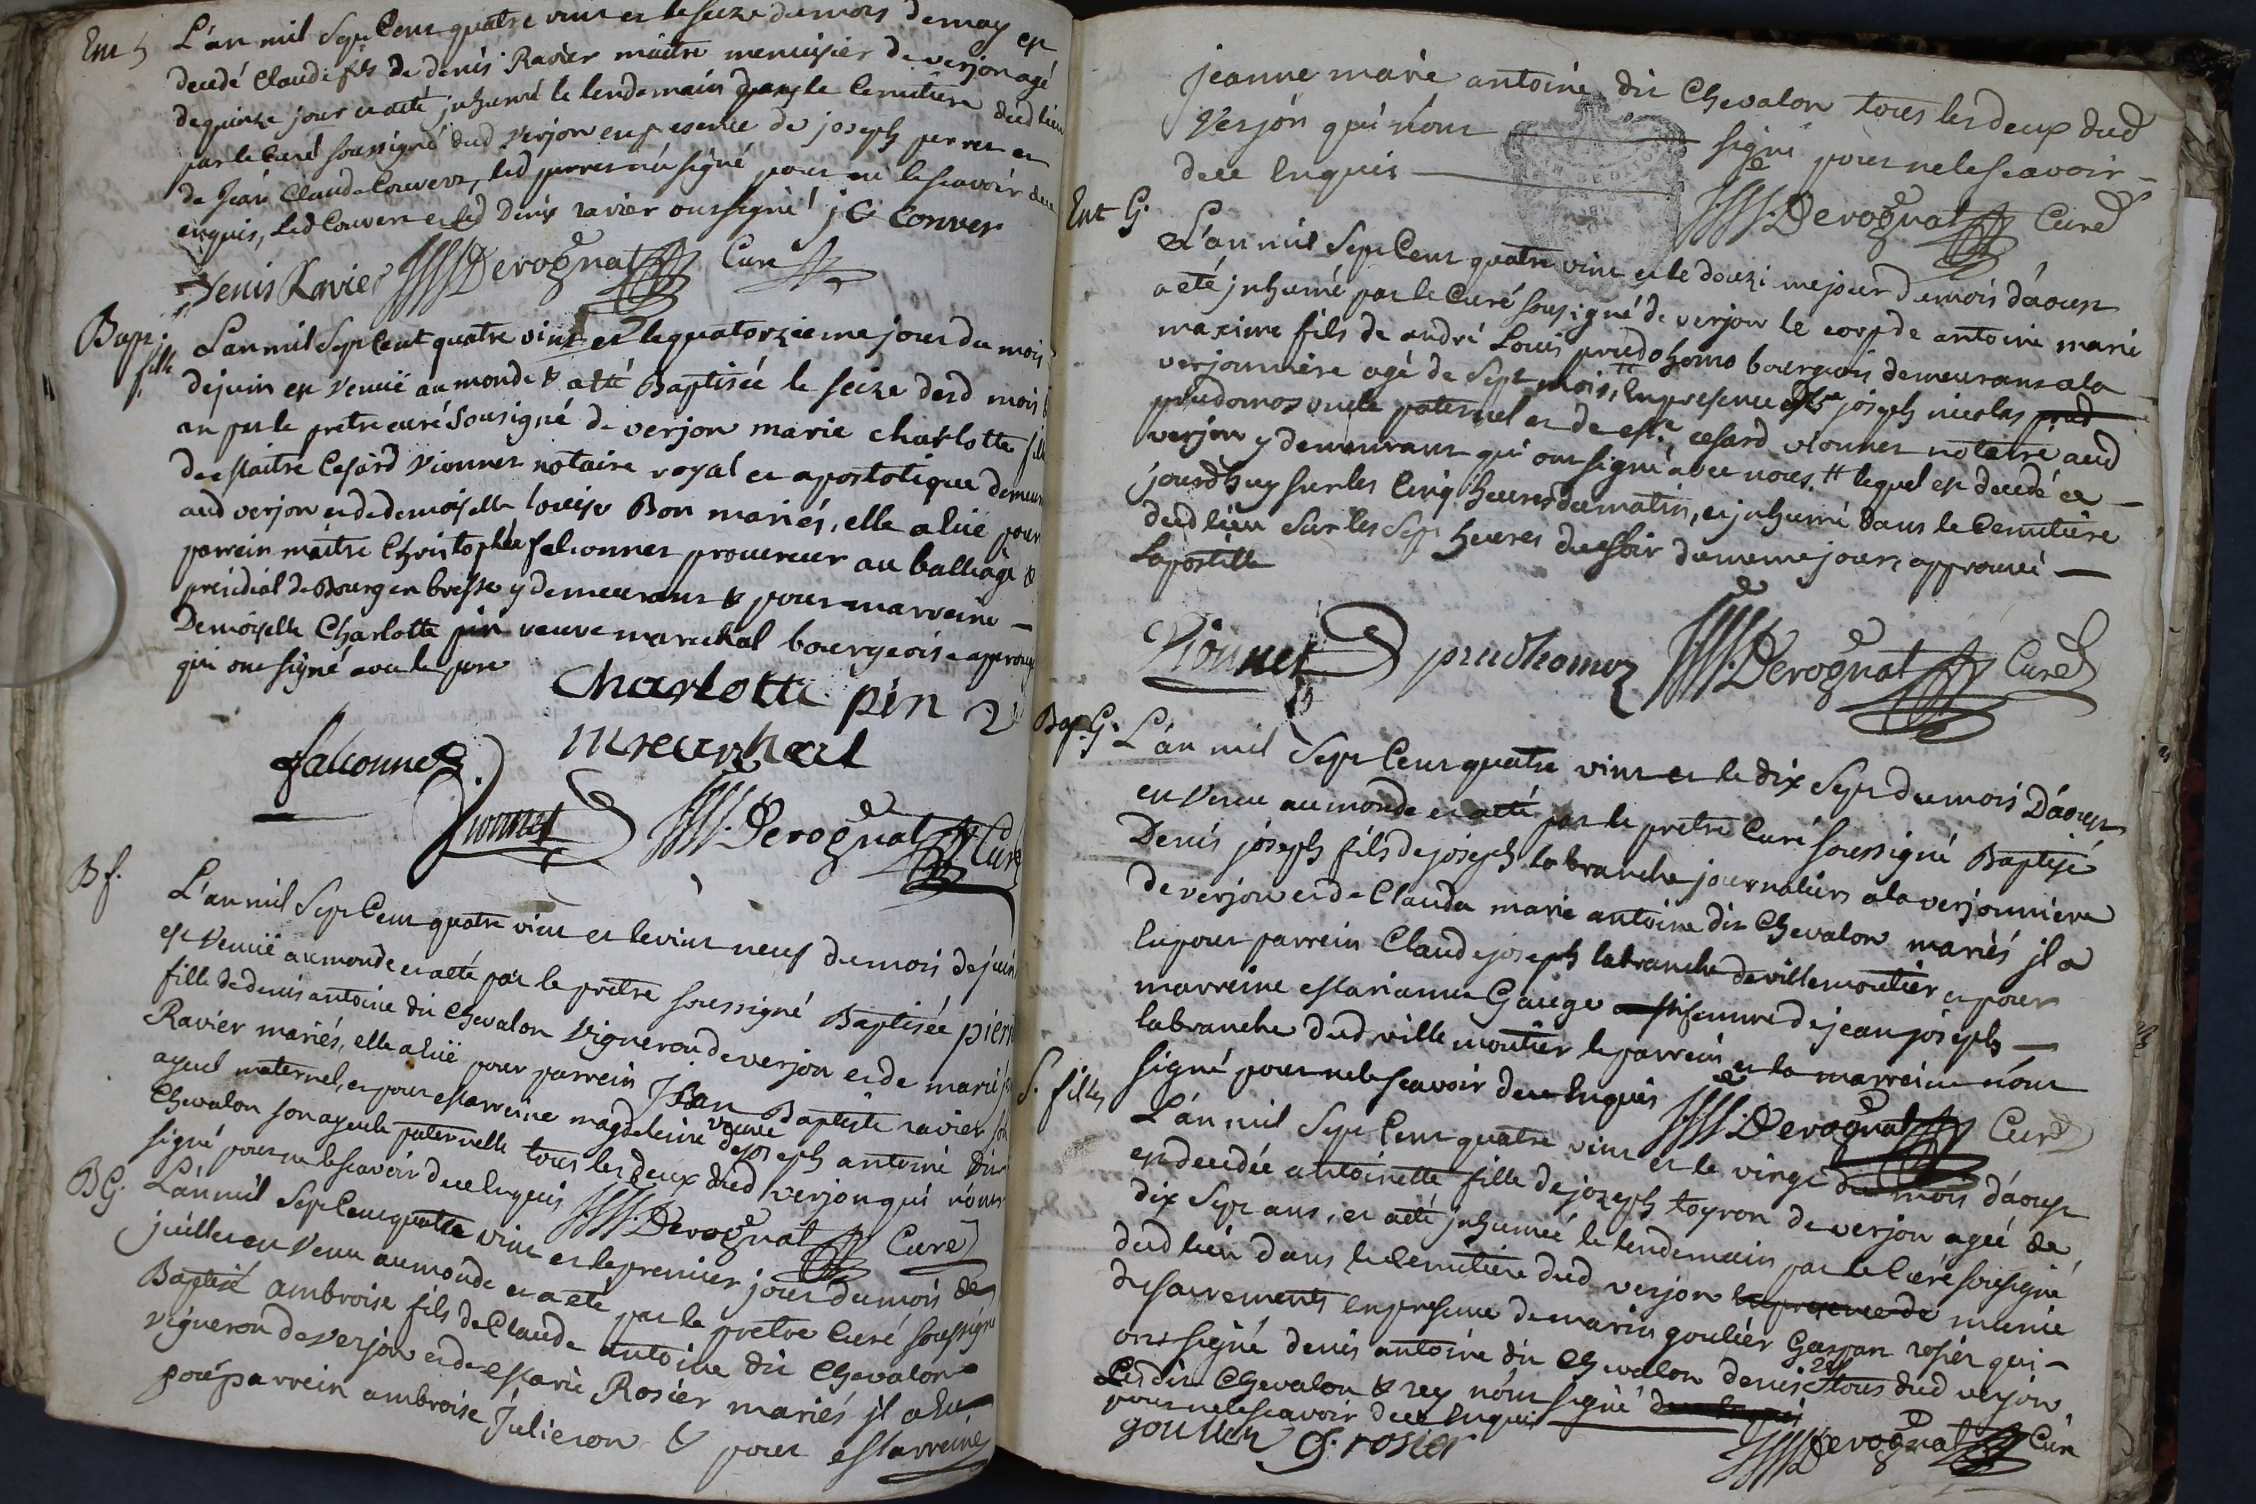 L'an mil Sept Cent quatre vint et le seize du mois de may est
decedé Claude fils de denis Ravier maitre menuisier de verjon agé
de quinze jour et a eté inhumé le lendemain dans le Cemitiere dud lieu
par le Curé soussigné dud Verjon en presence de joseph perret et
de jean Claude Couvert, led perret n'a signé pour ne le scavoir de ce
enquis, Led Couvert et led Denis ravier ont signé j C Conver
Denis Ravier Derognat Curé
Bapt. fille
L'an mil Sept Cent quatre vint et le quatorzieme jour du mois
de juin est venuë au monde & a eté Baptisée le seize dud mois
an par le pretre curé Sousigné de verjon marie charlotte fille
de Maitre Cesard Vionnet notaire royal et apostolique demeurant
aud verjon et de demoiselle louise Bon mariés, elle a luë pour
parrein maitre Christophle falconnet procureur au balliage &
presidial de Bourg en bresse y demeurant & pour marreine
Demoiselle Charlotte pin veuve marechal bourgeoise approuvé
qui ont signé avec le pere
Charlotte pin
marechal
falconnet
Vionnet Derognat Curé
B f.
L'an mil Sept Cent quatre vint et le vint neuf du mois de juin
est Venuë au monde et a eté par le pretre soussigné Baptisée
fille de denis antoine dit Chevalon Vigneron de verjon et de marie
Ravier mariés, elle a luë pour parrein Jean Baptiste ravier son
ayeul maternel, et pour Marreine magdeleine veuve de joseph antoine dit
Chevalon son ayeule paternelle tous les deux dud verjon qui n'ont
signé pour ne le scavoir de ce Enquis Derognat Curé
B G.
L'an mil Sept Cent quatre vint et le premier jour du mois de
juillet est Venu au monde et a eté par le pretre Curé soussigné
Baptisé ambroise fils de Claude antoine dit Chevalon
vigneron de verjon et de Marie Rosier mariés il a lu
pour parrein ambroise Julieron & pour Marreine
jeanne marie antoine dit Chevalon tous les deux dud
Verjon qui n'ont signé pour ne le scavoir
de ce Enquis
Derognat Curé
Ent G.
L'an mil Sept Cent quatre vint et le douzieme jour du mois d'aoust
a eté inhumé par le Curé sousigné de verjon le corps de antoine marie
maxime fils de andré Louis prudhomo bourgeois demeurant a la
verjonniere agé de Sept mois, # En presence de joseph nicolas
prudomoz oncle paternel et de cesard vionnet notaire aud
verjon y demeurant qui ont signé avec nous. # lequel est decedé ce
jourdhuy sur les Cinq heures du matin, et inhumé dans le Cemitiere
dud lieu sur les Sept heures du soir du meme jour, approuvé
Lapostille
Vionnet prudhomoz Derognat Curé
Bap. G.
L'an mil Sept Cent quatre vint et le dix Sept du mois D'aoust
est Venu au monde et a eté par le pretre Curé soussigné Baptisé
Denis joseph fils de joseph labranche journalier a la verjonniere
de verjon et de Claudu marie antoine dit Chevalon mariés il a
lu pour parrein Claude joseph labranche de villemoutier et pour
marreine Marianne Gauge femme de jean joseph
labranche dud ville moutier le parrein et la marreine n'ont
signé pour ne le scavoir de ce Enquis Derognat Curé
S. filles
L'an mil Sept Cent quatre vint et le vingt du mois d'aoust
est decedée antoinette fille de jozeph toyron de verjon agée de
dix Sept ans, et a eté inhumée le lendemain par le Curé sousigné
dud lieu dans le Cemitiere dud verjon en presence de munie
du sacrements En presence de marin goulier Gaspar rosier qui
ont signé denis antoine dit Chevalon denis rey tous dud verjon
Led dit Chevalon & rey n'ont signé
pour ne le scavoir de ce Enquis
goullier G. rosier Derognat Curé